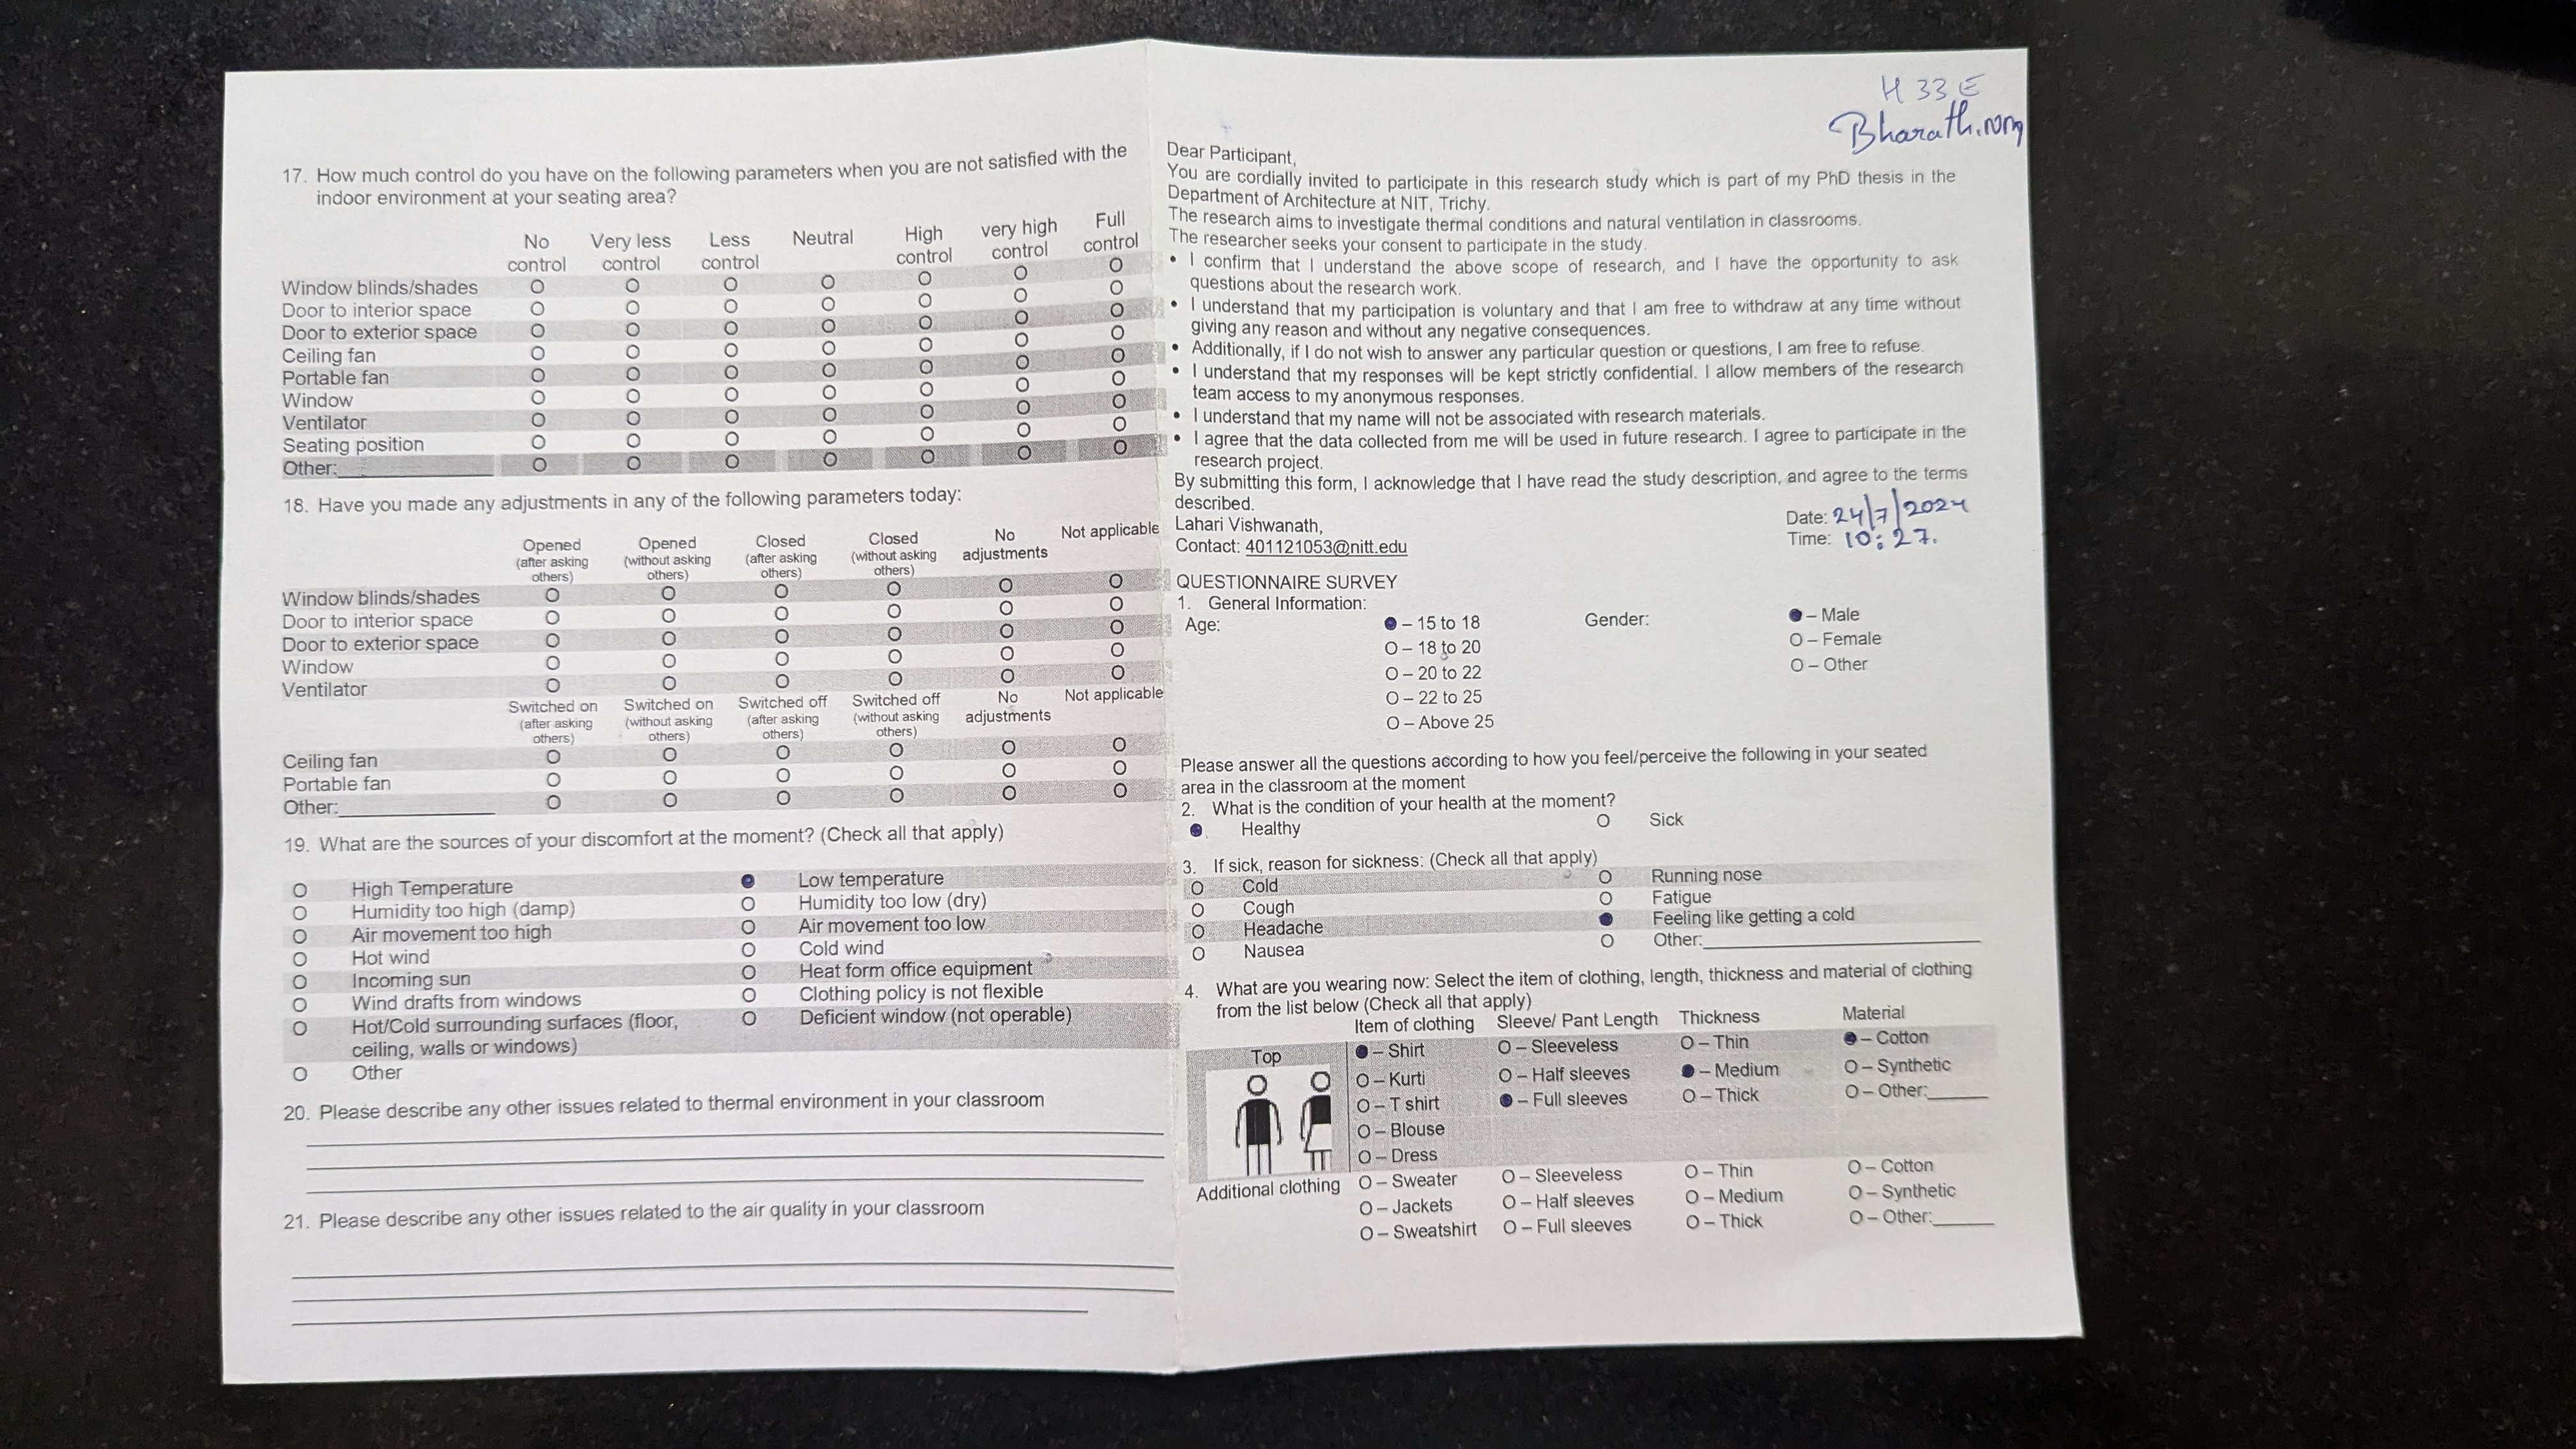 17. How much control do you have on the following parameters when you are not satisfied with the
indoor environment at your seating area?
No control Very less control Less control Neutral High control very high control Full control
Window blinds/shades O O O O O O O
Door to interior space O O O O O O O
Door to exterior space O O O O O O O
Ceiling fan O O O O O O O
Portable fan O O O O O O O
Window O O O O O O O
Ventilator O O O O O O O
Seating position O O O O O O O
Other:____ O O O O O O O
18. Have you made any adjustments in any of the following parameters today:
Opened (after asking others) Opened (without asking others) Closed (after asking others) Closed (without asking others) No adjustments Not applicable
Window blinds/shades O O O O O O
Door to interior space O O O O O O
Door to exterior space O O O O O O
Window O O O O O O
Ventilator O O O O O O
Switched on (after asking others) Switched on (without asking others) Switched off (after asking others) Switched off (without asking others) No adjustments Not applicable
Ceiling fan O O O O O O
Portable fan O O O O O O
Other:____ O O O O O O
19. What are the sources of your discomfort at the moment? (Check all that apply)
O High Temperature ● Low temperature
O Humidity too high (damp) O Humidity too low (dry)
O Air movement too high O Air movement too low
O Hot wind O Cold wind
O Incoming sun O Heat form office equipment
O Wind drafts from windows O Clothing policy is not flexible
O Hot/Cold surrounding surfaces (floor, O Deficient window (not operable)
ceiling, walls or windows)
O Other
20. Please describe any other issues related to thermal environment in your classroom
21. Please describe any other issues related to the air quality in your classroom
H 33 E
Bharath.
Dear Participant,
You are cordially invited to participate in this research study which is part of my PhD thesis in the
Department of Architecture at NIT, Trichy.
The research aims to investigate thermal conditions and natural ventilation in classrooms.
The researcher seeks your consent to participate in the study.
• I confirm that I understand the above scope of research, and I have the opportunity to ask
questions about the research work.
• I understand that my participation is voluntary and that I am free to withdraw at any time without
giving any reason and without any negative consequences.
• Additionally, if I do not wish to answer any particular question or questions, I am free to refuse.
• I understand that my responses will be kept strictly confidential. I allow members of the research
team access to my anonymous responses.
• I understand that my name will not be associated with research materials.
• I agree that the data collected from me will be used in future research. I agree to participate in the
research project.
By submitting this form, I acknowledge that I have read the study description, and agree to the terms
described.
Lahari Vishwanath, Date: 24/7/2024
Contact: 401121053@nitt.edu Time: 10:27.
QUESTIONNAIRE SURVEY
1. General Information:
Age: ● – 15 to 18 Gender: ● – Male
O – 18 to 20 O – Female
O – 20 to 22 O – Other
O – 22 to 25
O – Above 25
Please answer all the questions according to how you feel/perceive the following in your seated
area in the classroom at the moment
2. What is the condition of your health at the moment?
● Healthy O Sick
3. If sick, reason for sickness: (Check all that apply)
O Cold O Running nose
O Cough O Fatigue
O Headache ● Feeling like getting a cold
O Nausea O Other:____
4. What are you wearing now: Select the item of clothing, length, thickness and material of clothing
from the list below (Check all that apply)
Item of clothing Sleeve/ Pant Length Thickness Material
Top ● – Shirt O – Sleeveless O – Thin ● – Cotton
O – Kurti O – Half sleeves ● – Medium O – Synthetic
O – T shirt ● – Full sleeves O – Thick O – Other:____
O – Blouse
O – Dress
Additional clothing O – Sweater O – Sleeveless O – Thin O – Cotton
O – Jackets O – Half sleeves O – Medium O – Synthetic
O – Sweatshirt O – Full sleeves O – Thick O – Other:____